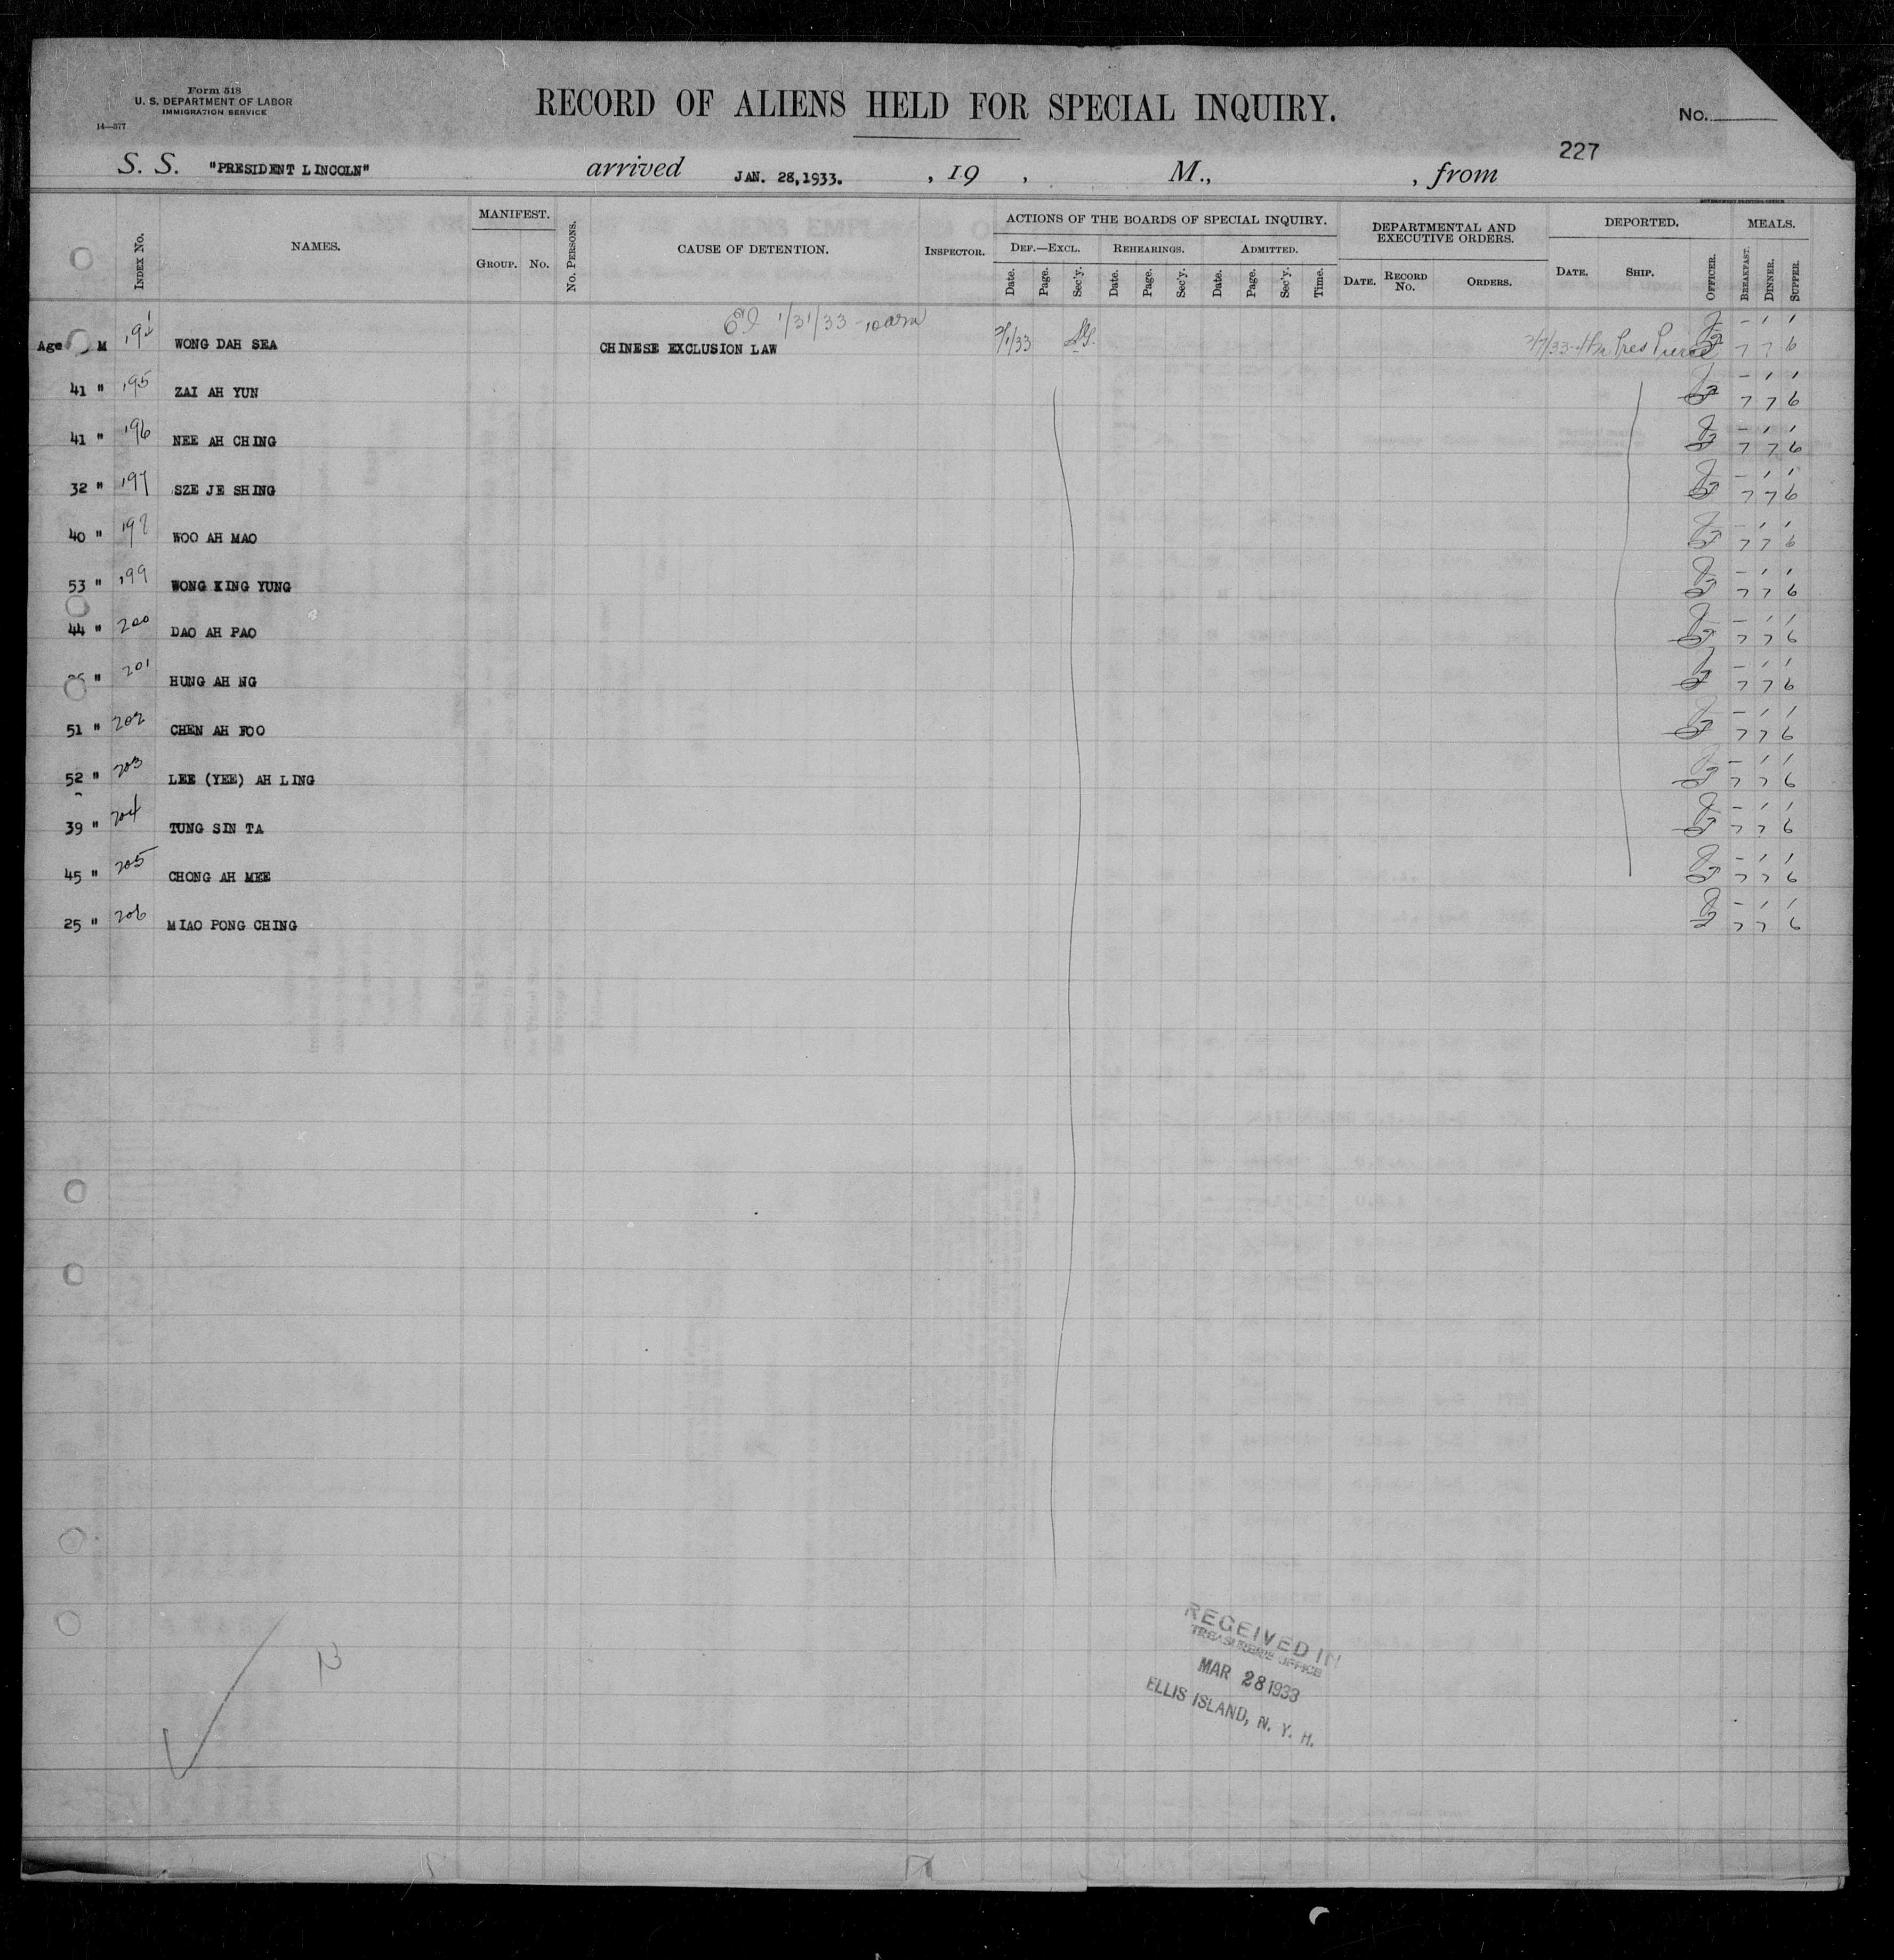 Form 518
U. S. DEPARTMENT OF LABOR
IMMIGRATION SERVICE
14—577
RECORD OF ALIENS HELD FOR SPECIAL INQUIRY.
No.
227
S. S. "PRESIDENT LINCOLN" arrived JAN. 28,1933. , 19 , M., , from
GOVERNMENT PRINTING OFFICE
INDEX No. NAMES. MANIFEST. GROUP. No. No. PERSONS. CAUSE OF DETENTION. INSPECTOR. ACTIONS OF THE BOARDS OF SPECIAL INQUIRY. DEF.—EXCL. Date. Page. Sec'y. REHEARINGS. Date. Page. Sec'y. ADMITTED. Date. Page. Sec'y. Time. DEPARTMENTAL AND EXECUTIVE ORDERS. DATE. RECORD No. ORDERS. DEPORTED. DATE. SHIP. OFFICER. MEALS. BREAKFAST. DINNER. SUPPER.
1/31/33 - 10 am
Age M WONG DAH SEA CHINESE EXCLUSION LAW 2/1/33 2/7/33 Pres Pierce 7 7 6
41 " 195 ZAI AH YUN 7 7 6
41 " 196 NEE AH CHING 7 7 6
32 " 197 SZE JE SHING 7 7 6
40 " 198 WOO AH MAO 7 7 6
53 " 199 WONG KING YUNG 7 7 6
44 " 200 DAO AH PAO 7 7 6
" 201 HUNG AH NG 7 7 6
51 " 202 CHEN AH FOO 7 7 6
52 " 203 LEE (YEE) AH LING 7 7 6
39 " 204 TUNG SIN TA 7 7 6
45 " 205 CHONG AH MEE 7 7 6
25 " 206 MIAO PONG CHING 7 7 6
13
RECEIVED IN
TREASURER'S OFFICE
MAR 28 1933
ELLIS ISLAND, N. Y. H.